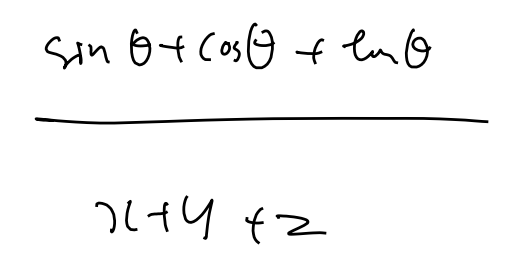 sin θ + cos θ + ln θ
x + y + z